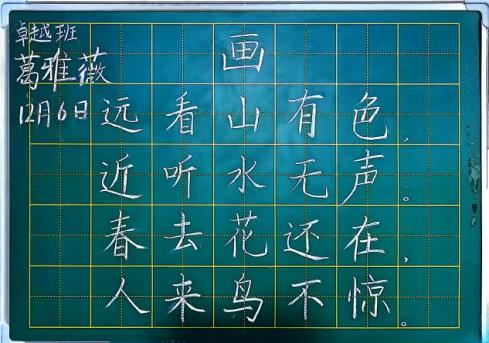 卓越班
葛雅薇
12月6日
画
远看山有色，
近听水无声。
春去花还在，
人来鸟不惊。